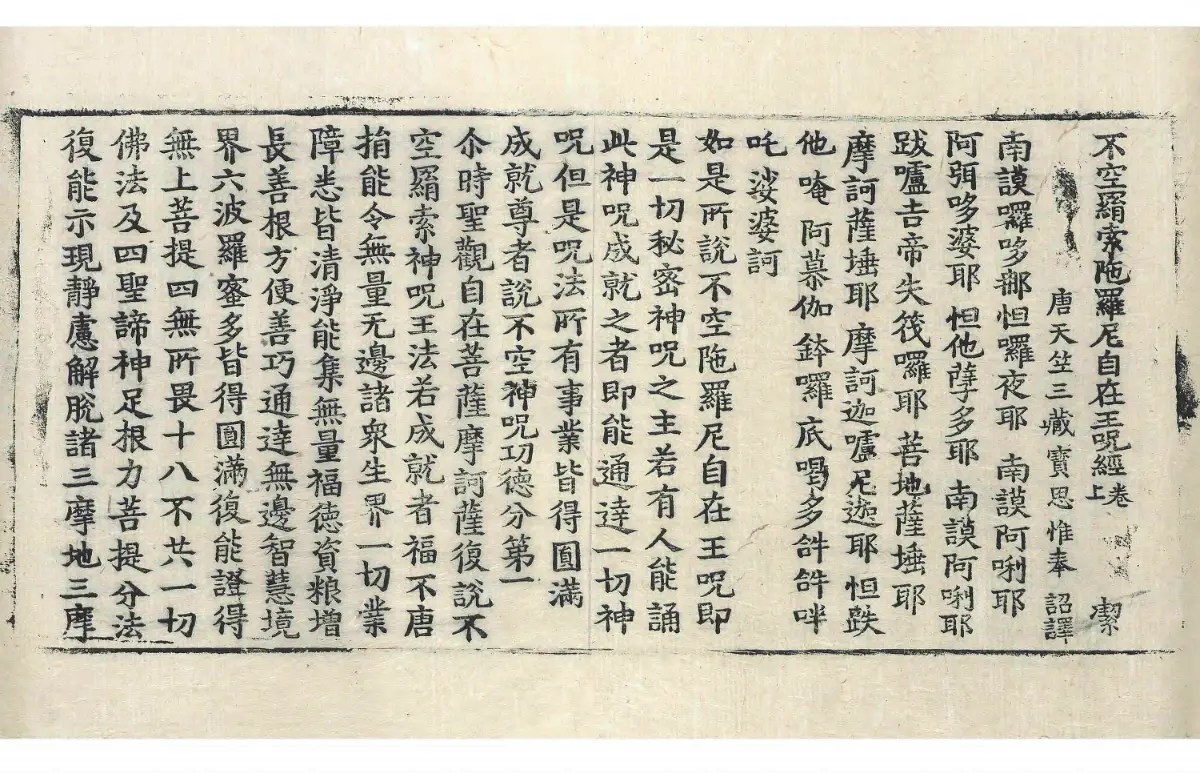 不空羂索陁羅尼自在王呪經卷上 潔
唐天竺三藏寶思惟奉 詔譯
南謨囉哆鄒怛囉夜耶 南謨阿唎耶
阿弭哆婆耶 怛他孽多耶 南謨阿唎耶
跋嚧吉帝失筏囉耶 菩地薩埵耶
摩訶薩埵耶 摩訶迦嚧尼迦耶 怛跌
他 唵 阿慕伽 鉢囉底喝多 𤙖 𤙖 㕹
吒 娑婆訶
如是所說不空陁羅尼自在王呪即
是一切秘密神呪之主若有人能誦
此神呪成就之者即能通達一切神
呪但是呪法所有事業皆得圓滿
成就尊者說不空神呪功德分第一
尒時聖觀自在菩薩摩訶薩復說不
空羂索神呪王法若成就者福不唐
捐能令無量无邊諸衆生界一切業
障悉皆清淨能集無量福德資粮增
長善根方便善巧通達無邊智慧境
界六波羅蜜多皆得圓滿復能證得
無上菩提四無所畏十八不共一切
佛法及四聖諦神足根力菩提分法
復能示現靜慮解脫諸三摩地三摩